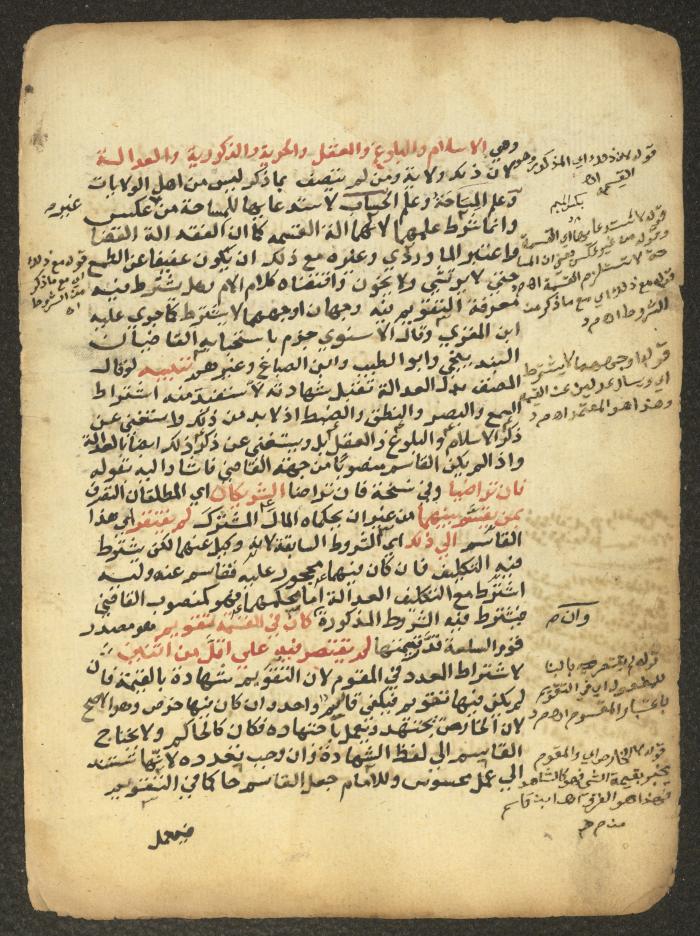 وهي الاسلام والبلوغ والعقل والحرية والذكورية والعدالة
لان ذلك ولاية ومن لم يتصف بما ذكر ليس من اهل الولايات
وعلم المساحة وعلم الحساب لاستدعائها للمساحة من غير عكس
وانما شرط علمهما لانهما الة القسمة كما ان الفقه الة القضا
واعتبر الماوردي وغيره مع ذلك ان يكون عفيفا عن الطمع
حتى لا يرتشي ولا يخون واقتضاه كلام الام وهل يشترط فيه
معرفة التقويم فيه وجهان اوجههما لا يشترط كما جرى عليه
ابن المقري وقال الاسنوي جزم باستحبابه القاضيان
البندنيجي وابو الطيب وابن الصباغ وغيرهم تنبيه لو قال
المصنف بدل العدالة تقبل شهادته لاستفيد منه اشتراط
السمع والبصر والنطق والضبط اذ لا بد من ذلك واستغنى عن
ذكر الاسلام والبلوغ والعقل بل ويستغنى عن ذكر ذلك ايضا بالعدالة
واذا لم يكن القاسم منصوبا من جهة القاضي فاشار اليه بقوله
فان تراضيا وفي نسخة فان تراضا الشريكان اي المطلقان التصرف
بمن يقسم بينهما من غير ان يحكماه المال المشترك لم يفتقر اي هذا
القاسم الى ذلك اي الشروط السابقة لانه وكيل عنهما لكن يشترط
فيه التكليف فان كان فيهما محجور عليه فقاسم عنه وليه
اشترط مع التكليف العدالة اما محكمهما فهو كمنصوب القاضي
فيشترط فيه الشروط المذكورة كان في القسمة تقويم هو مصدر
قوم السلعة قدر قيمتها لم يقتصر فيه على اقل من اثنين
لاشتراط العدد في المقوم لان التقويم شهادة بالقيمة فان
لم يكن فيها تقويم فيكفي قاسم واحد وان كان فيها خرص وهو الاصح
لان الخارص يجتهد ويعمل باجتهاده فكان كالحاكم ولا يحتاج
القاسم الى لفظ الشهادة وان وجب تعدده لانها تستند
الى عمل محسوس وللامام جعل القاسم حاكما في التقويم
فيعمل
غير
قوله مع ذلك
اي مع ما ذكر
من الشروط
اه
قوله لان ذلك اي المذكور وهو
القسمة اه
بكر الميم
قوله لاستدعائها اي القسمة
قوله مع ذلك اي مع ما ذكر من
الشروط اه م د
قوله اوجههما لا يشترط
اي ويسال عدلين عند القسمة
وهذا هو المعتمد اه م د
وان م
قوله لم يقتصر فيه بالبنا
للمفعول اي في التقويم
باعتبار المقسوم اه م د
قوله لان الخارص اي والمقوم
يخبر بقيمة الشي فهو كالشاهد
فهذا هو الفرق اه ابن قاسم